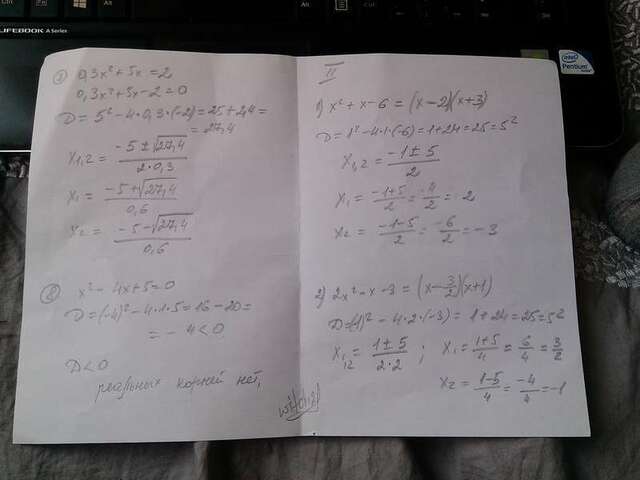 LIFEBOOK A Series
intel
Pentium
3) 0,3x² + 5x = 2
0,3x² + 5x - 2 = 0
D = 5² - 4·0,3·(-2) = 25 + 2,4 =
= 27,4
x₁,₂ = (-5 ± √27,4) / (2·0,3)
x₁ = (-5 + √27,4) / 0,6
x₂ = (-5 - √27,4) / 0,6
x² - 4x + 5 = 0
D = (-4)² - 4·1·5 = 16 - 20 =
= -4 < 0
D < 0
реальных корней нет,
II
1) x² + x - 6 = (x - 2)(x + 3)
D = 1² - 4·1·(-6) = 1 + 24 = 25 = 5²
x₁,₂ = (-1 ± 5) / 2
x₁ = (-1+5)/2 = 4/2 = 2
x₂ = (-1-5)/2 = -6/2 = -3
2) 2x² - x - 3 = (x - 3/2)(x + 1)
D = (-1)² - 4·2·(-3) = 1 + 24 = 25 = 5²
x₁,₂ = (1 ± 5) / (2·2) ; x₁ = (1+5)/4 = 6/4 = 3/2
x₂ = (1-5)/4 = -4/4 = -1